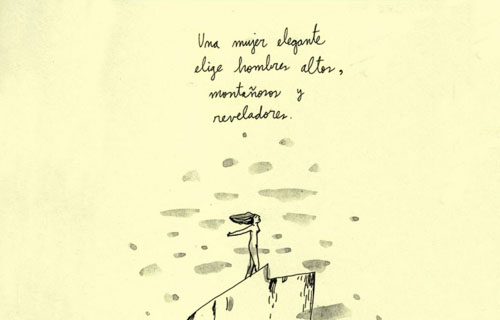 Una mujer elegante
elige hombres altos,
montañosos y
reveladores.